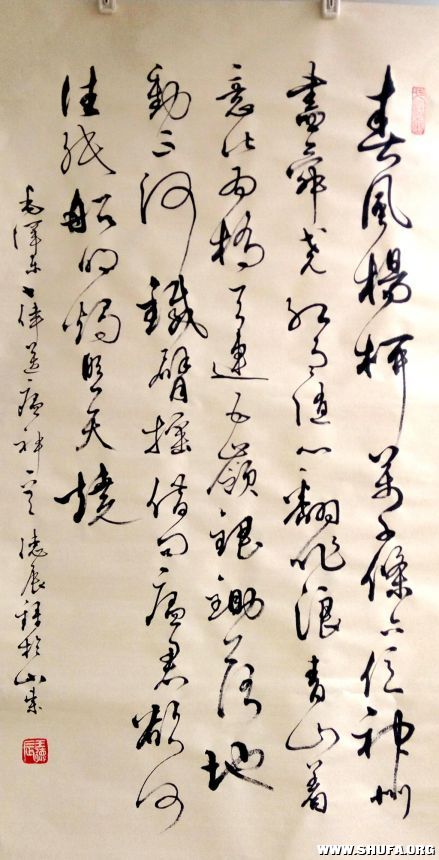 春風楊柳萬千條六億神州
盡舜堯紅雨隨心翻作浪青山着
意化為橋天連五嶺銀鋤落地
動三河鐵臂搖借問瘟君欲何
往紙船明燭照天燒
毛澤東七律送瘟神一首 德辰錄於山東
WWW.SHUFA.ORG